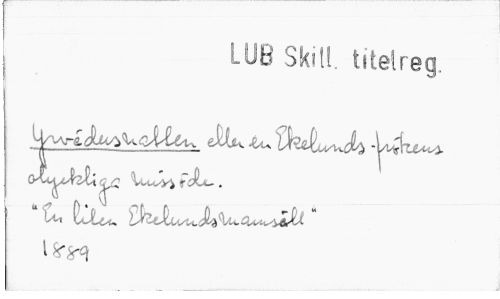 LUB Skill. titelreg.
Yrvädersnatten eller en Ekelunds-frökens
olyckliga missöde.
"En liten Ekelundsmamsell"
1889